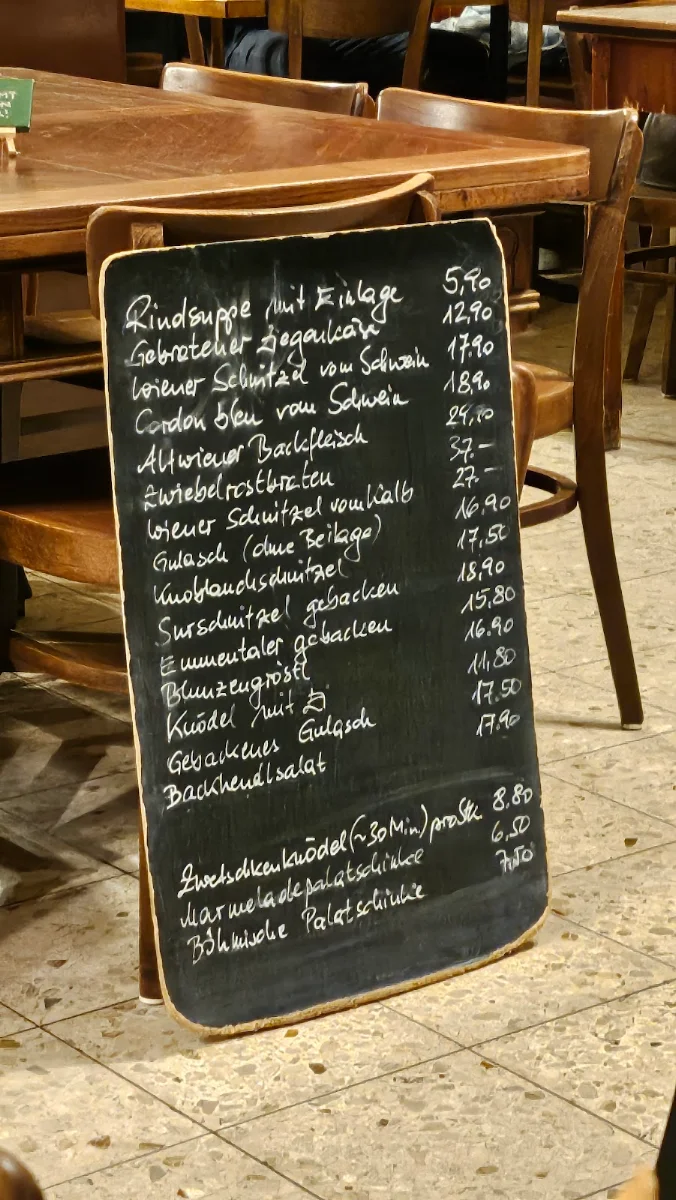 MT
N
!
Rindsuppe mit Einlage 5,90
Gebratener Ziegenkäse 12,90
Wiener Schnitzel vom Schwein 17.90
Cordon bleu vom Schwein 18,90
Altwiener Backfleisch
Zwiebelrostbraten 37.-
Wiener Schnitzel vom Kalb 27.-
Gulasch (ohne Beilage) 16,90
Knoblauchschnitzel 17,50
Surschnitzel gebacken 18,90
Emmentaler gebacken 15,80
Blunzengröstl 16.90
Knödel mit Ei 11,80
Gebackenes Gulasch 17.50
Backhendlsalat 17.90
Zwetschkenknödel (~30Min) pro Stk 8,80
Marmeladepalatschinke 6,50
Böhmische Palatschinke 7,50